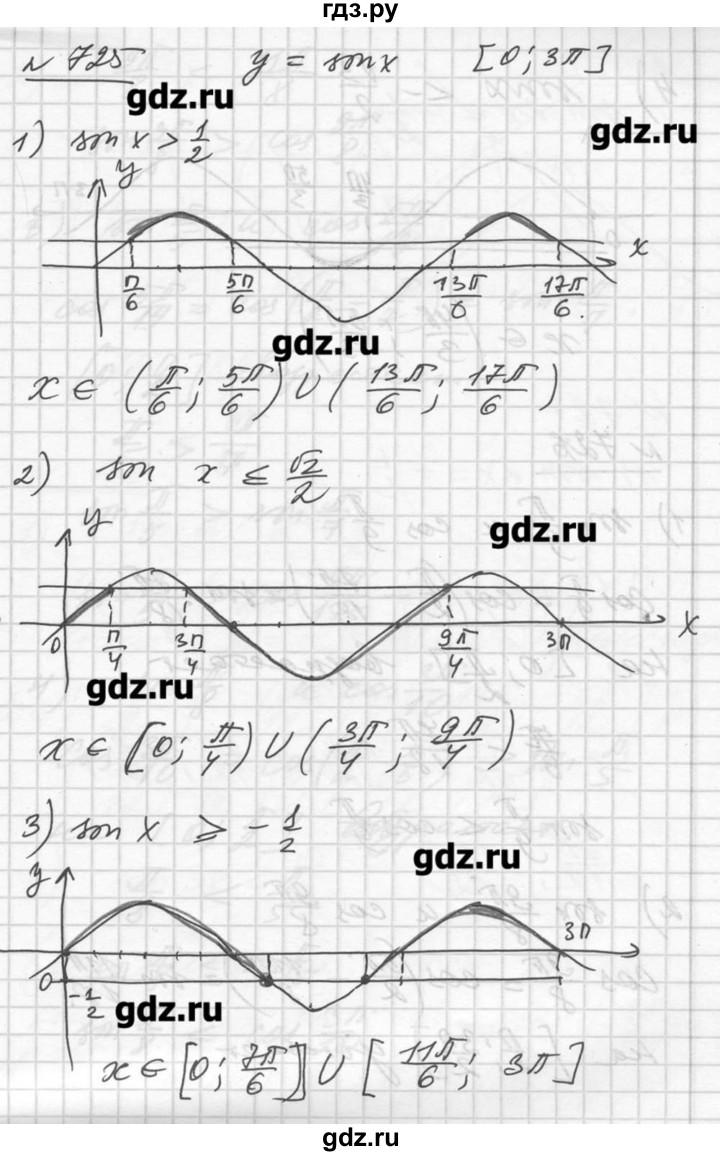 гдз.ру
№ 725 y = sin x [0; 3π]
gdz.ru
gdz.ru
1) sin x > 1/2
y
x
π/6 5π/6 13π/6 17π/6.
gdz.ru
x ∈ (π/6; 5π/6) ∪ (13π/6; 17π/6)
2) sin x ≤ √2/2
gdz.ru
y
x
0 π/4 3π/4 9π/4 3π
gdz.ru
x ∈ [0; π/4) ∪ (3π/4; 9π/4)
3) sin x ≥ -1/2
gdz.ru
y
3π
0
-1/2
gdz.ru
x ∈ [0; 7π/6] ∪ [11π/6; 3π]
gdz.ru